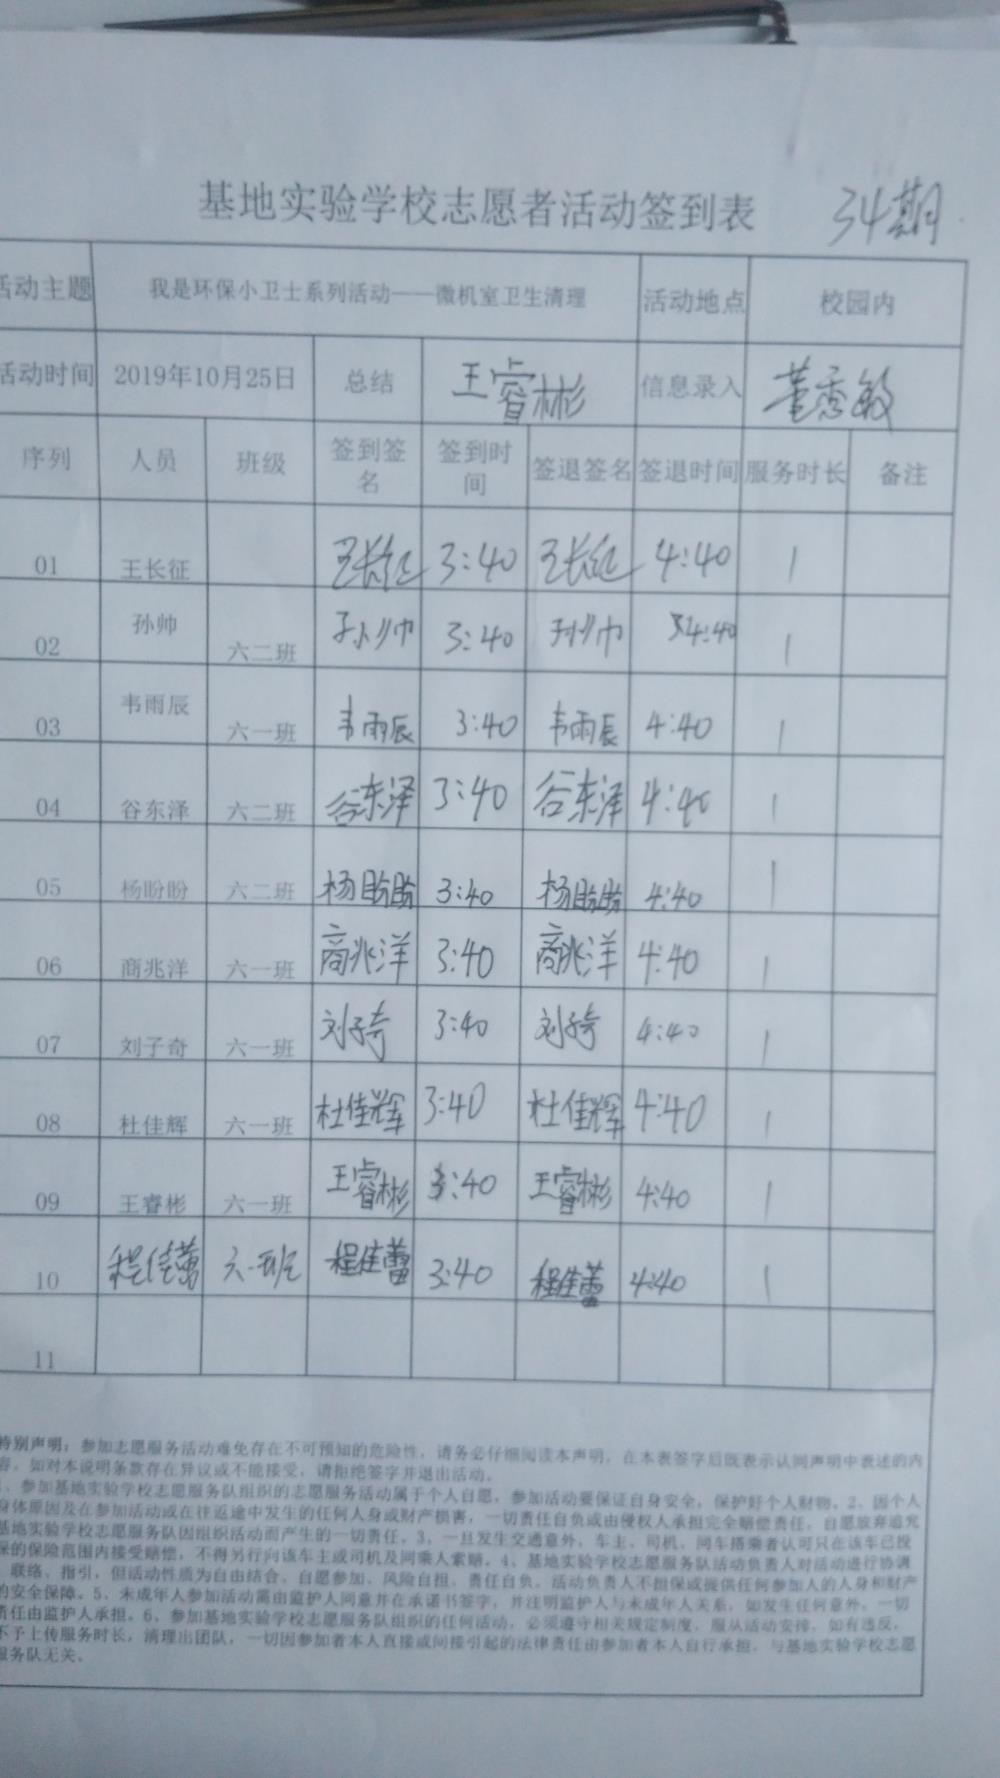 基地实验学校志愿者活动签到表 34期
活动主题 我是环保小卫士系列活动——微机室卫生清理 活动地点 校园内
活动时间 2019年10月25日 总结 王睿彬 信息录入 董秀敏
序列 人员 班级 签到签名 签到时间 签退签名 签退时间 服务时长 备注
01 王长征 王长征 3:40 王长征 4:40 1
02 孙帅 六二班 孙帅 3:40 孙帅 4:40 1
03 韦雨辰 六一班 韦雨辰 3:40 韦雨辰 4:40 1
04 谷东泽 六二班 谷东泽 3:40 谷东泽 4:40 1
05 杨盼盼 六二班 杨盼盼 3:40 杨盼盼 4:40 1
06 商兆洋 六一班 商兆洋 3:40 商兆洋 4:40 1
07 刘子奇 六一班 刘子奇 3:40 刘子奇 4:40 1
08 杜佳辉 六一班 杜佳辉 3:40 杜佳辉 4:40 1
09 王睿彬 六一班 王睿彬 3:40 王睿彬 4:40 1
10 程佳蕾 六一班 程佳蕾 3:40 程佳蕾 4:40 1
11
特别声明：参加志愿服务活动难免存在不可预知的危险性，请务必仔细阅读本声明，在本表签字后既表示认同声明中表述的内
容。如对本说明条款存在异议或不能接受，请拒绝签字并退出活动。
1、参加基地实验学校志愿服务队组织的志愿服务活动属于个人自愿，参加活动要保证自身安全，保护好个人财物。2、因个人
身体原因及在参加活动或在往返途中发生的任何人身或财产损害，一切责任自负或由侵权人承担完全赔偿责任，自愿放弃追究
基地实验学校志愿服务队因组织活动而产生的一切责任。3、一旦发生交通意外，车主、司机、同车搭乘者认可只在该车已投
保的保险范围内接受赔偿，不得另行向该车主或司机及同乘人索赔。4、基地实验学校志愿服务队活动负责人对活动进行协调
、联络、指引，但活动性质为自由结合、自愿参加、风险自担、责任自负。活动负责人不担保或提供任何参加人的人身和财产
的安全保障。5、未成年人参加活动需由监护人同意并在承诺书签字，并注明监护人与未成年人关系，如发生任何意外，一切
责任由监护人承担。6、参加基地实验学校志愿服务队组织的任何活动，必须遵守相关规定制度，服从活动安排，如有违反，
不予上传服务时长，清理出团队，一切因参加者本人直接或间接引起的法律责任由参加者本人自行承担，与基地实验学校志愿
服务队无关。